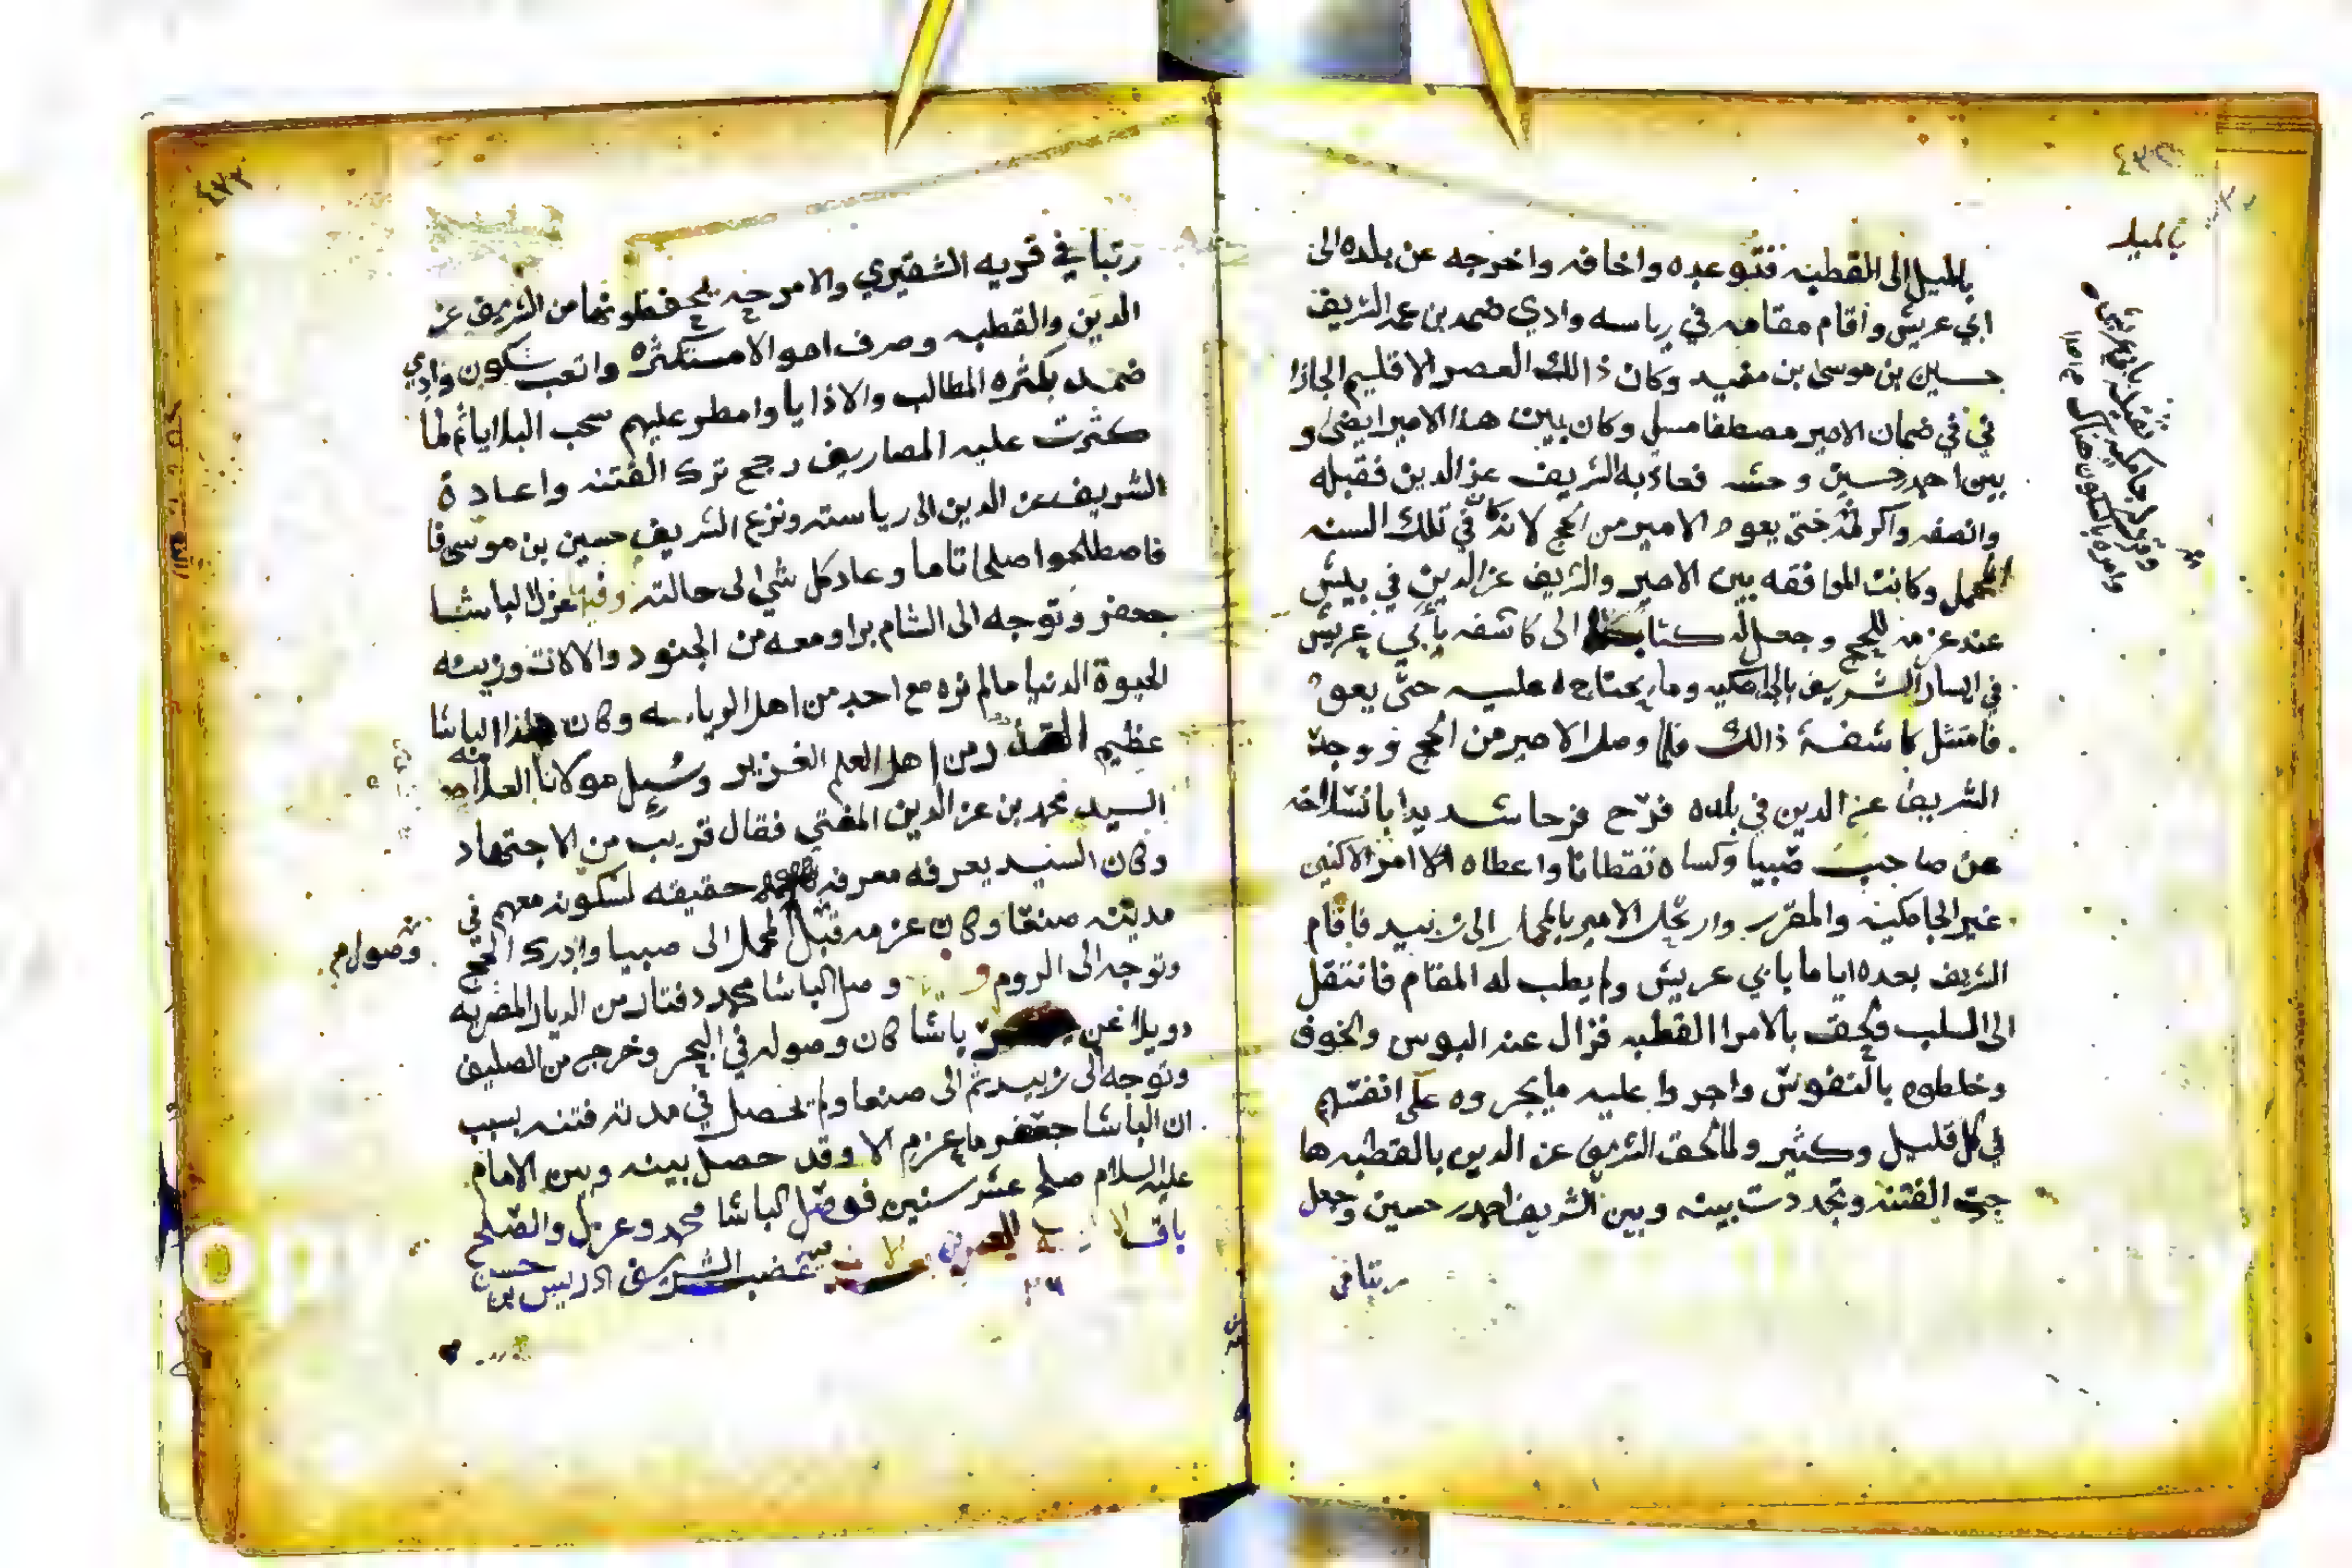 بالميل الى القطبه فتوعده واخافه واخرجه عن بلده الى
ابي عريش واقام مقامه في رياسه وادي ضمد بن عمه الشريف
حسين بن موسى بن مفيد وكان ذالك العصر الاقليم الجازا
ني في ضمان الامير مصطفا مسلي وكان بين هذا الامير ايضا و
بين احمد حسين وحشه فعاذ به الشريف عز الدين فقبله
وانصفه واكرمه حتى يعود الامير من الحج لانه كان في تلك السنه
المحمل وكانت الموافقه بين الامير والشريف عز الدين في بيش
عند عزمه للحج وجعل له كتابا الى كاشفه بأبي عريش
في الشريف بالجامكيه وما يحتاج اليه حتى يعو
فامتثل كاشفه ذالك فلما وصل الامير من الحج ووجد
الشريف عز الدين في بلده فرح فرحا شديدا بانسلاخه
عن صاحب صبيا وكساه قفطانا واعطاه
غير الجامكيه والمقرر وارتحل الامير بالمحمل الى زبيد فاقام
الشريف بعده اياما بابي عريش ولم يطب له المقام فانتقل
الى السلب ولحق بالامرا القطبه فزال عنه البوس والخوف
وخلطوه بالنفوس واجروا عليه ما يجروه على انفسهم
في كل قليل وكثير ولما لحق الشريف عز الدين بالقطبه ها
جت الفتنه وتجددت بينه وبين الشريف احمد حسين وجعل
رتبا في
بالميل
رتبا في قريه الشقيري والامرجه يحفظونها من الشريف عز
الدين والقطبه وصرف اموالا مستكثره واتعب سكون وادي
ضمد بكثره المطالب والاذايا وامطر عليهم سحب البلايا ثم لما
كثرت عليه المصاريف رجح ترك الفتنه واعادة
الشريف عز الدين الى رياسته ونزع الشريف حسين بن موسى فا
فاصطلحوا صلحا تاما وعاد كل شي الى حالته وفيها عزل الباشا
جعفر وتوجه الى الشام برا ومعه من الجنود والالات وزينه
الحيوة الدنيا ما لم نره مع احد من اهل الرياسه وكان هذا الباشا
عظيم القدر من اهل العلم الغزير وسيل مولانا العلامه
السيد محمد بن عز الدين المفتي فقال قريب من الاجتهاد
وكان السيد يعرفه معرفه حقيقه لسكونه معهم في
مدينه صنعا وكان عزمه قبل المحمل الى صبيا وادرك الحج
وتوجه الى الروم و وصل الباشا محمد دفتار من الديار المصريه
بدويلا عن باشا كان وصوله في البحر وخرج من الصليف
وتوجه الى زبيد ثم الى صنعا ولم تحصل في مدته فتنه بسبب
ان الباشا جعفر ما عزم الا وقد حصل بينه وبين الامام
عليه السلام صلح عشر سنين فوصل الباشا محمد وعزل والصلح
باق غضب الشريف ادريس بن حسن
وصولهم